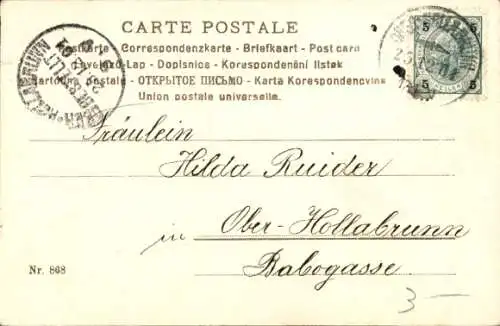 CARTE POSTALE
Postkarte - Correspondenzkarte - Briefkaart - Post card
Levelező-Lap - Dopisnice - Korespondenční lístek
Cartolina postale - ОТКРЫТОЕ ПИСЬМО - Karta Korespondencyjna
Union postale universelle.
5 5
5 5
Fräulein
Hilda Ruider
in Ober-Hollabrunn
Babogasse.
Nr. 868
3 —